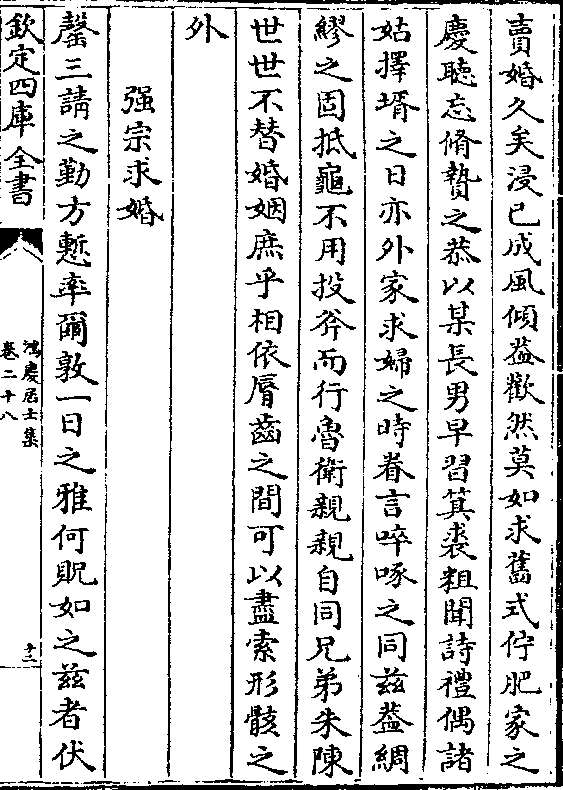 賣婚久矣浸已成風傾葢歡然莫如求舊式佇肥家之
慶聽忘脩贄之恭以某長男早習箕裘粗聞詩禮偶諸
姑擇壻之日亦外家求婦之時眷言啐啄之同兹葢綢
繆之固抵龜不用投斧而行魯衛親親自同兄弟朱陳
世世不替婚姻庶乎相依脣齒之間可以盡索形骸之
外
强宗求婚
罄三請之勤方慙率爾敦一日之雅何貺如之兹者伏
欽定四庫全書
鴻慶居士集
卷二十八
十二